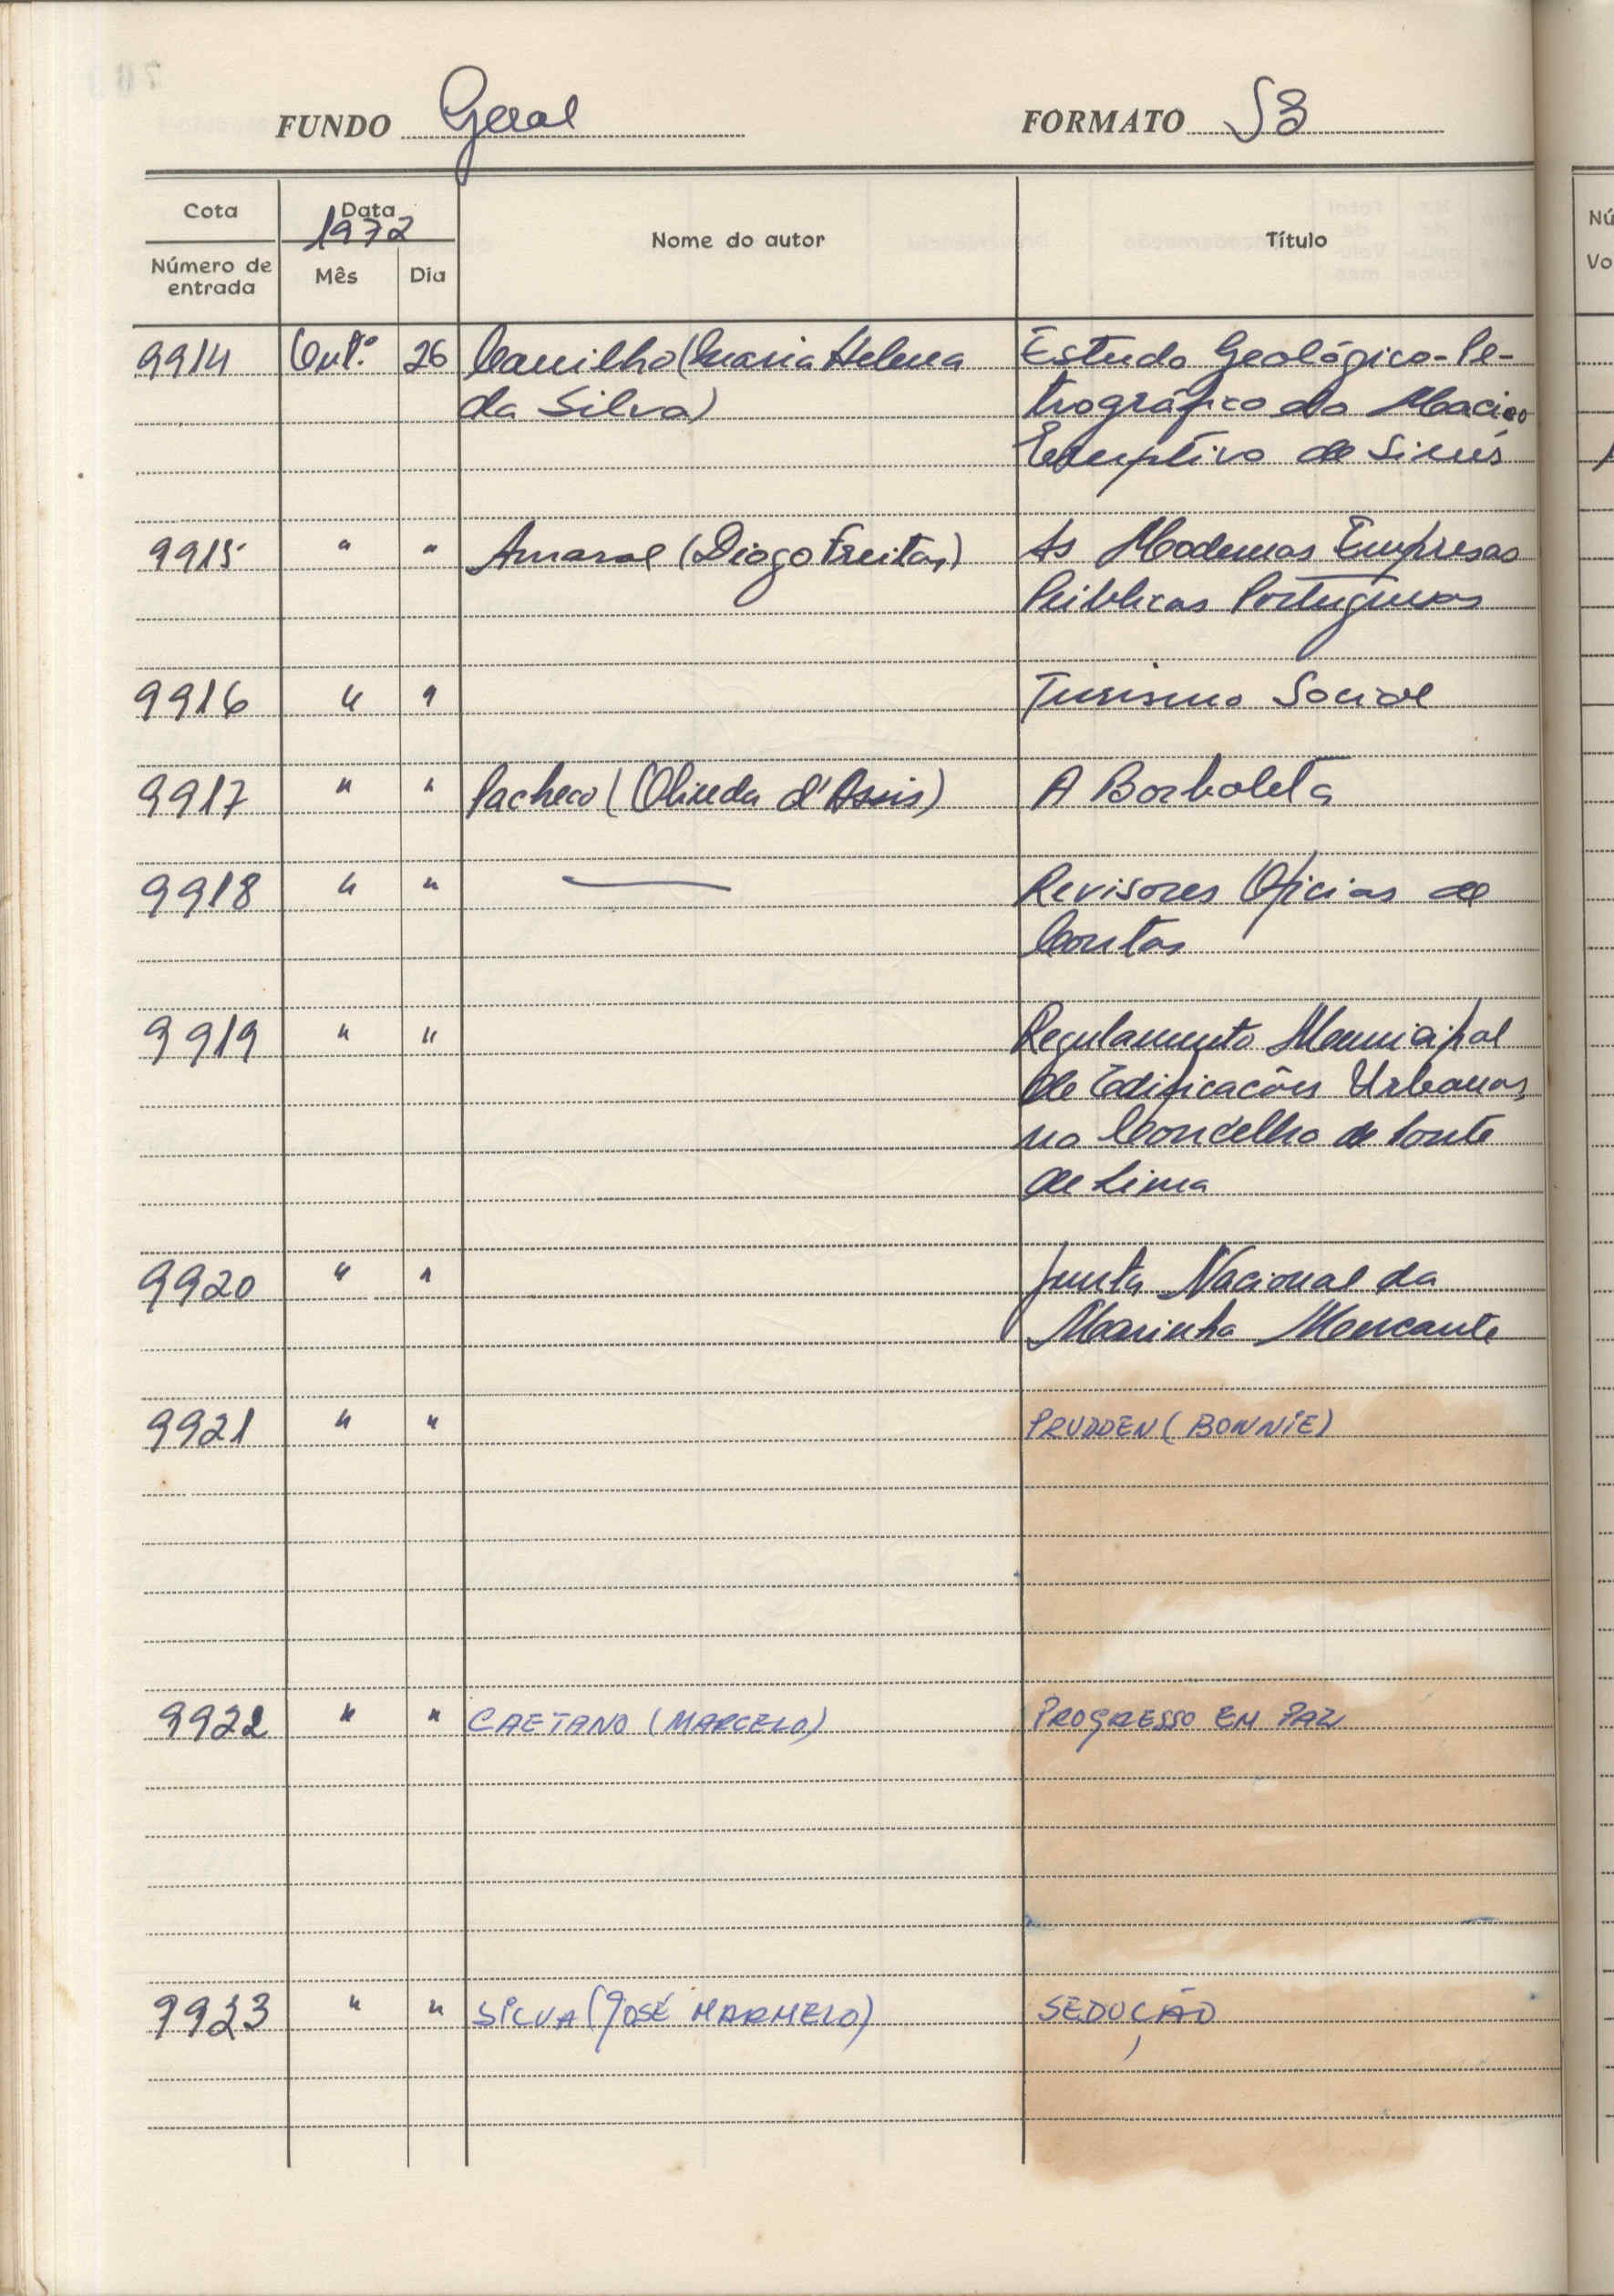 FUNDO Geral FORMATO S3
Cota Data Nome do autor Título
1972
Número de entrada Mês Dia
9914 Outº. 26 Canilho (Maria Helena Estudo Geológico-Pe-
da Silva) trográfico do Maciço
Eruptivo de Sines
9915 " " Amaral (Diogo Freitas) As Modernas Empresas
Públicas Portuguesas
9916 " " Turismo Social
9917 " " Pacheco (Olinda d'Assis) A Borboleta
9918 " " — Revisores Oficias de
Contas
9919 " " Regulamento Municipal
de Edificacões Urbanas
no Concelho de Ponte
de Lima
9920 " " Junta Nacional da
Marinha Mercante
9921 " " PRUDDEN (BONNIE)
9922 " " CAETANO (MARCELO) PROGRESSO EM PAZ
9923 " " SILVA (JOSÉ MARMELO) SEDUÇÃO
Nú
Vo